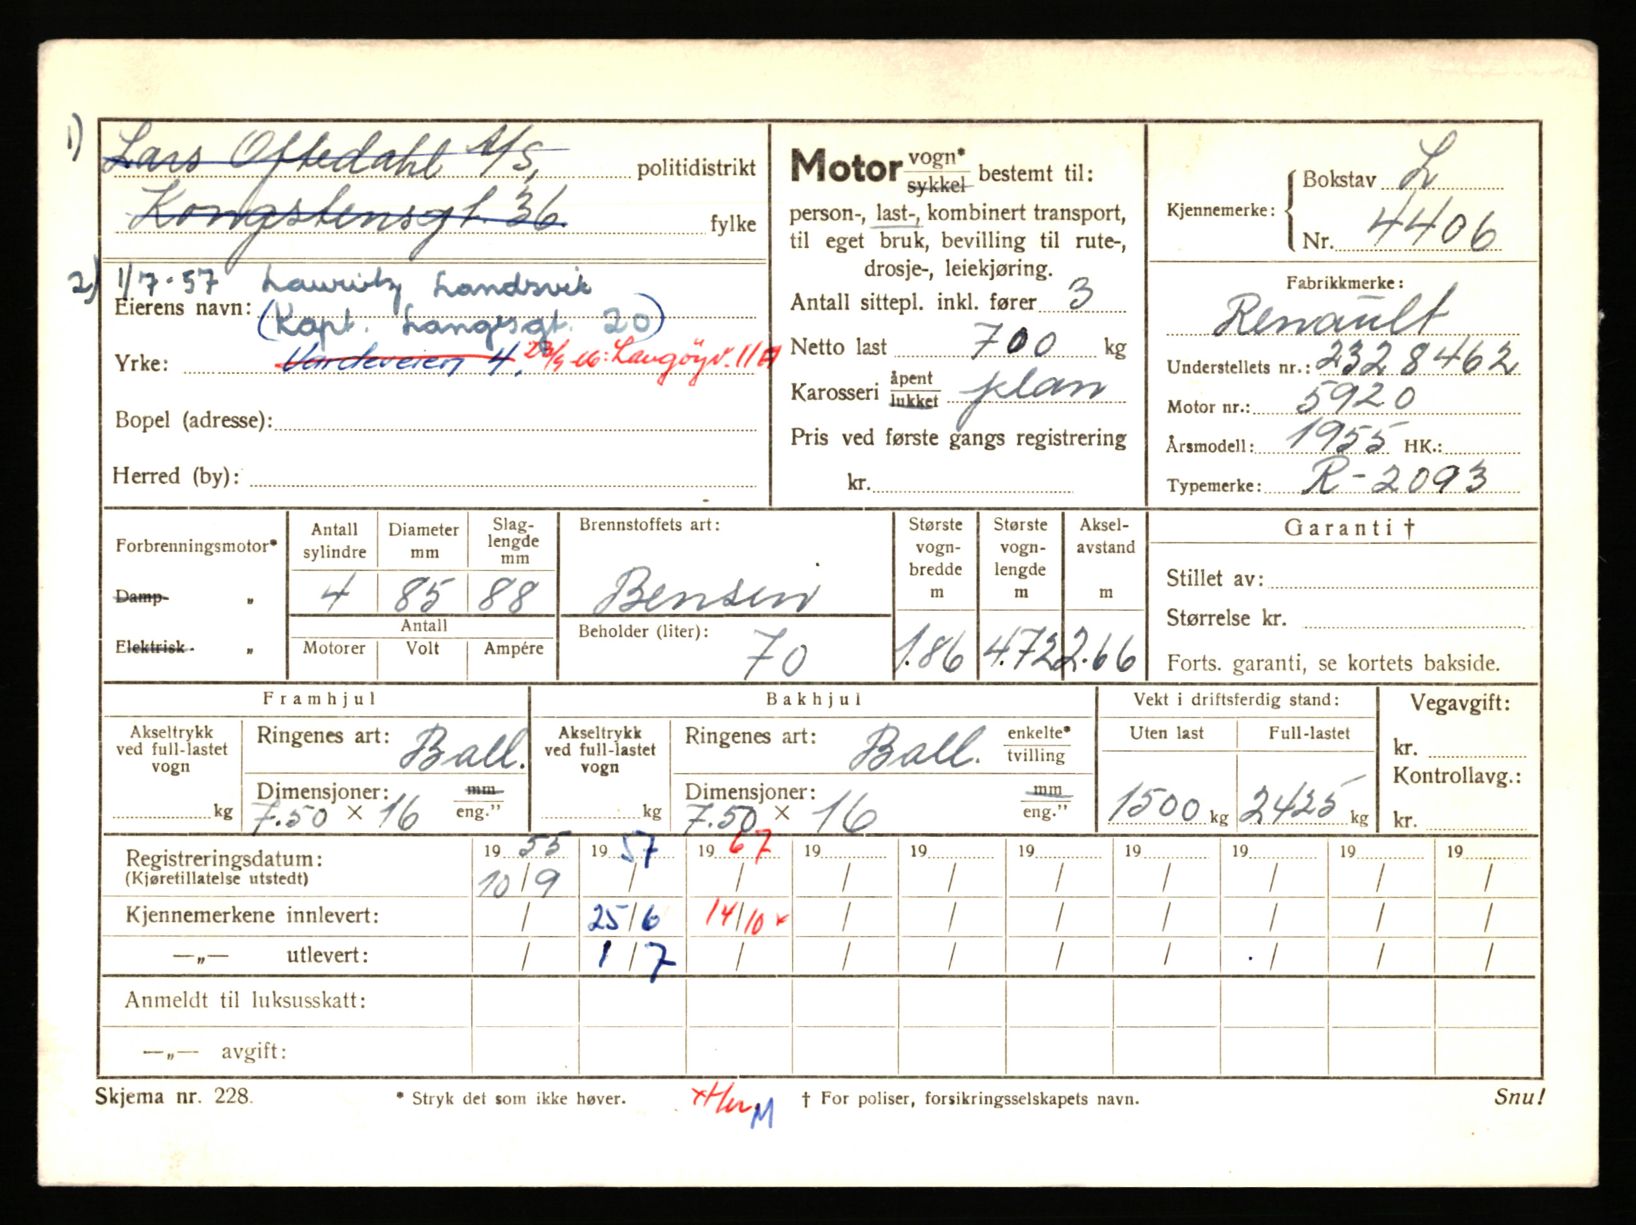 1) Lars Oftedahl A/S, politidistrikt
Kongstensgt. 36 fylke
2) 1/7-57 Lauritz Landsvik
Eierens navn: (Kapt. Langesgt. 20)
Yrke: Vardeveien 4. 23/9 66: Langøyv. 11
Bopel (adresse):
Herred (by):
Motor vogn* sykkel bestemt til:
person-, last-, kombinert transport,
til eget bruk, bevilling til rute-,
drosje-, leiekjøring.
Antall sittepl. inkl. fører 3
Netto last 700 kg
Karosseri åpent lukket plan
Pris ved første gangs registrering
kr.
Kjennemerke: Bokstav L
Nr. 4406
Fabrikkmerke:
Renault
Understellets nr.: 2328462
Motor nr.: 5920
Årsmodell: 1955 HK.:
Typemerke: R-2093
Forbrenningsmotor*
Damp- „
Elektrisk- „
Antall sylindre Diameter mm Slag-lengde mm
4 85 88
Antall
Motorer Volt Ampére
Brennstoffets art:
Bensin
Beholder (liter):
70
Største vogn-bredde m Største vogn-lengde m Aksel-avstand m
1.86 4.72 2.66
Garanti †
Stillet av:
Størrelse kr.
Forts. garanti, se kortets bakside.
Framhjul
Akseltrykk ved full-lastet vogn
kg
Ringenes art: Ball.
Dimensjoner: mm eng.”
7.50 × 16
Bakhjul
Akseltrykk ved full-lastet vogn
kg
Ringenes art: Ball. enkelte* tvilling
Dimensjoner: mm eng.”
7.50 × 16
Vekt i driftsferdig stand:
Uten last Full-lastet
1500 kg 2425 kg
Vegavgift:
kr.
Kontrollavg.:
kr.
Registreringsdatum: 19 55 19 57 19 67 19 19 19 19 19 19 19
(Kjøretillatelse utstedt) 10/9 / / / / / / / / /
Kjennemerkene innlevert: / 25/6 14/10 × / / / / / / /
—„— utlevert: / 1/7 / / / / / / / /
Anmeldt til luksusskatt:
—„— avgift:
Skjema nr. 228. * Stryk det som ikke høver. † For poliser, forsikringsselskapets navn. Snu!